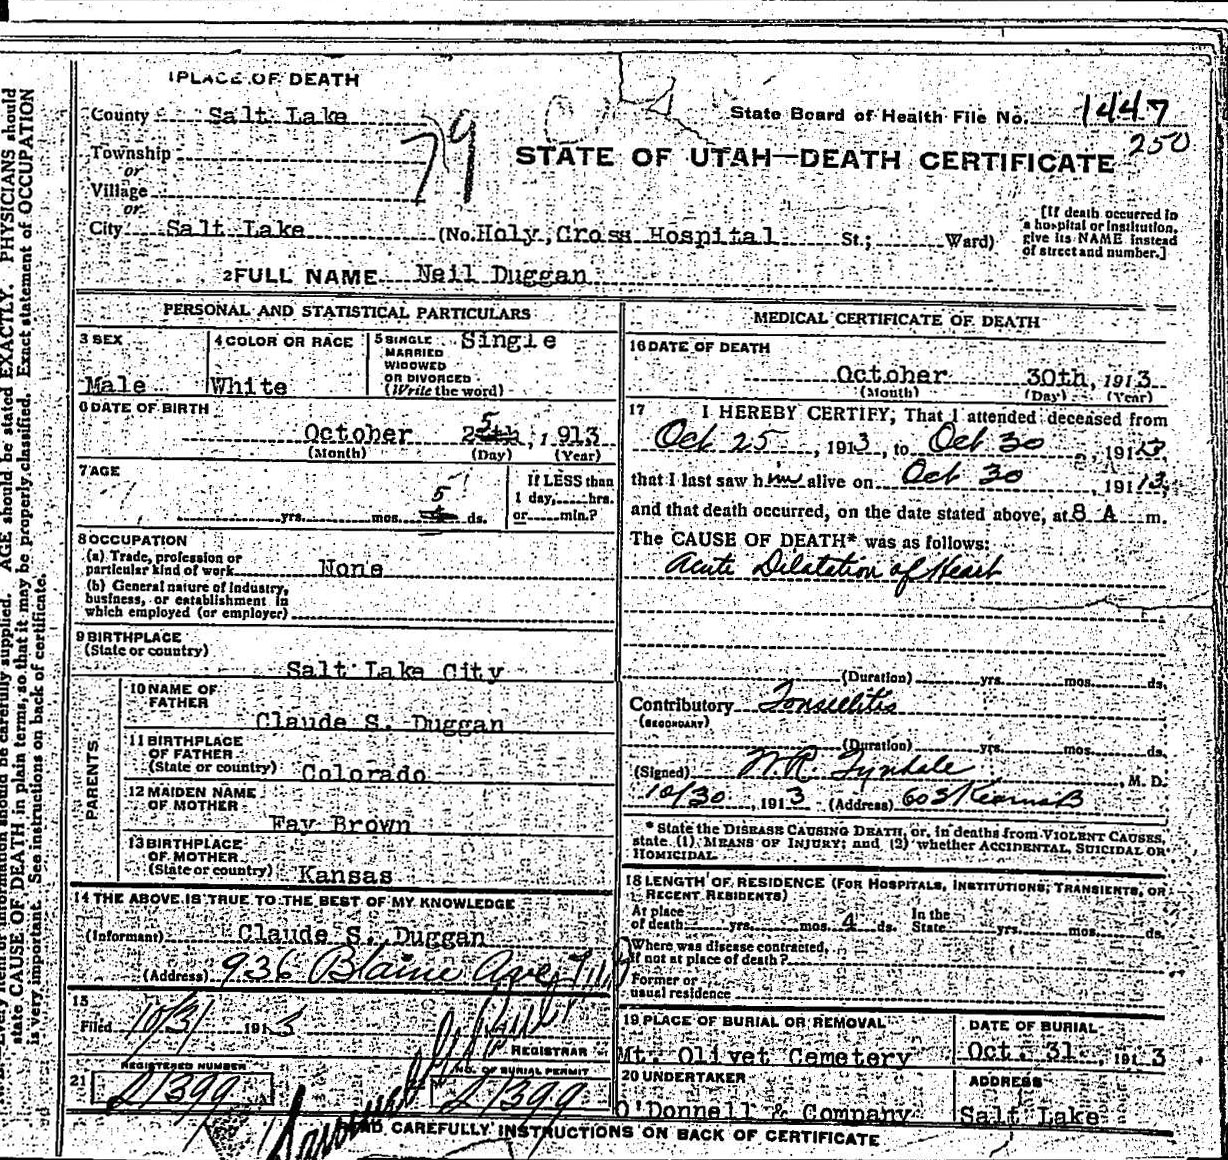 1 PLACE OF DEATH
County Salt Lake
79
State Board of Health File No. 1447
250
Township
or
Village
or
STATE OF UTAH—DEATH CERTIFICATE
City Salt Lake (No. Holy Cross Hospital St.; Ward)
[If death occurred in
a hospital or institution,
give its NAME instead
of street and number.]
2 FULL NAME Neil Duggan
PERSONAL AND STATISTICAL PARTICULARS
3 SEX
Male
4 COLOR OR RACE
White
5 SINGLE
MARRIED
WIDOWED
OR DIVORCED
(Write the word)
Single
6 DATE OF BIRTH
October 25, 1913
(Month) (Day) (Year)
7 AGE
yrs. mos. 5 ds.
If LESS than
1 day, hrs.
or min.?
8 OCCUPATION
(a) Trade, profession or
particular kind of work None
(b) General nature of industry,
business, or establishment in
which employed (or employer)
9 BIRTHPLACE
(State or country)
Salt Lake City
PARENTS
10 NAME OF
FATHER
Claude S. Duggan
11 BIRTHPLACE
OF FATHER
(State or country) Colorado
12 MAIDEN NAME
OF MOTHER
Fay Brown
13 BIRTHPLACE
OF MOTHER
(State or country) Kansas
14 THE ABOVE IS TRUE TO THE BEST OF MY KNOWLEDGE
(Informant) Claude S. Duggan
(Address) 936 Blaine Ave
15
Filed 10/31 1913
REGISTRAR
21
REGISTERED NUMBER
21399
NO. OF BURIAL PERMIT
21399
MEDICAL CERTIFICATE OF DEATH
16 DATE OF DEATH
October 30th, 1913
(Month) (Day) (Year)
17 I HEREBY CERTIFY, That I attended deceased from
Oct 25, 1913, to Oct 30, 1913,
that I last saw him alive on Oct 30, 1913,
and that death occurred, on the date stated above, at 8 A m.
The CAUSE OF DEATH* was as follows:
Acute Dilatation of Heart
(Duration) yrs. mos. ds.
Contributory Tonselitis
(SECONDARY)
(Duration) yrs. mos. ds.
(Signed) W.R. Tyndale, M. D.
10/30, 1913 (Address) 603 Kearns B
* State the DISEASE CAUSING DEATH, or, in deaths from VIOLENT CAUSES,
state (1) MEANS OF INJURY; and (2) whether ACCIDENTAL, SUICIDAL OR
HOMICIDAL.
18 LENGTH OF RESIDENCE (FOR HOSPITALS, INSTITUTIONS, TRANSIENTS, OR
RECENT RESIDENTS)
At place
of death yrs. mos. 4 ds.
In the
State yrs. mos. ds.
Where was disease contracted,
if not at place of death?
Former or
usual residence
19 PLACE OF BURIAL OR REMOVAL
Mt. Olivet Cemetery
DATE OF BURIAL
Oct. 31, 1913
20 UNDERTAKER
O'Donnell & Company
ADDRESS
Salt Lake
READ CAREFULLY INSTRUCTIONS ON BACK OF CERTIFICATE
information should be carefully supplied. AGE should be stated EXACTLY. PHYSICIANS should
state CAUSE OF DEATH in plain terms, so that it may be properly classified. Exact statement of OCCUPATION
is very important. See instructions on back of certificate.